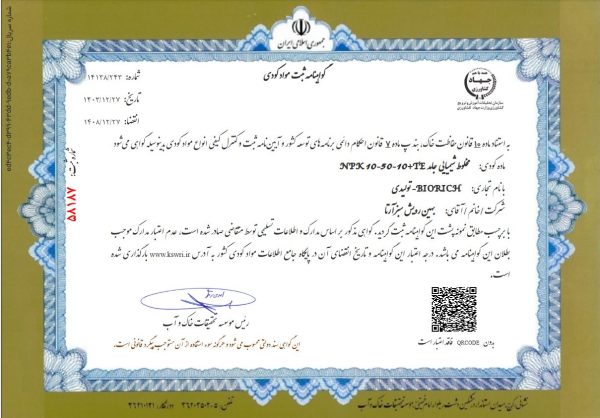 جمهوری اسلامی ایران
گواهینامه ثبت مواد کودی
شماره: ۱۴۱۳۸/۲۴۳
تاریخ: ۱۴۰۳/۱۲/۲۷
انقضا: ۱۴۰۸/۱۲/۲۷
جهاد
کشاورزی
سازمان تحقیقات، آموزش و ترویج کشاورزی
شماره ثبت:
۵۸۱۸۷
به استناد ماده ۱۰ قانون حفاظت خاک، بند پ ماده ۷ قانون احکام دائمی برنامه‌های توسعه کشور و آیین‌نامه ثبت و کنترل کیفی انواع مواد کودی بدینوسیله گواهی می‌شود
ماده کودی: مخلوط شیمیایی جامد NPK 10-50-10+TE
با نام تجاری: BIORICH-تولیدی
شرکت / خانم / آقای: بهین رویش سبز آرتا
با برچسب مطابق نمونه پشت این گواهینامه ثبت گردید. گواهی مذکور بر اساس مدارک و اطلاعات تسلیمی توسط متقاضی صادر شده است، عدم اعتبار مدارک موجب
بطلان این گواهینامه می باشد. درجه اعتبار این گواهینامه و تاریخ انقضای آن در پایگاه جامع اطلاعات مواد کودی کشور به آدرس www.kswri.ir بارگذاری شده
است.
رئیس موسسه تحقیقات خاک و آب
بدون QRCODE فاقد اعتبار است
این گواهی سند دولتی محسوب می شود و هرگونه سوء استفاده از آن مستوجب پیگرد قانونی است.
تلفن: ۵-۳۶۲۰۳۵۰۲ دورنگار: ۳۶۲۱۰۱۲۱